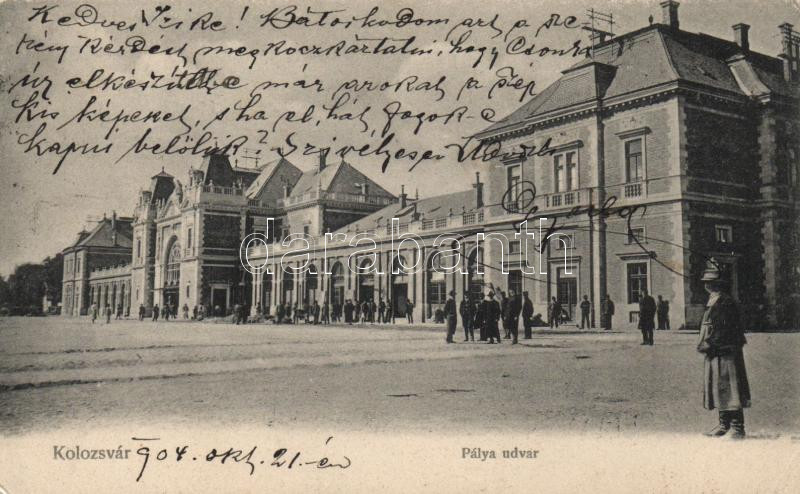 Kedves Irike! Bátorkodom azt a sze
rény kérdést megkoczkáztatni, hogy Csonka
úr elkészült-e már azokat a szép
kis képeket, s ha el, hát fogok-e
kapni belőlük? Szívélyesen üdv.
darabanth
Kolozsvár 904. okt. 21.-én
Pálya udvar